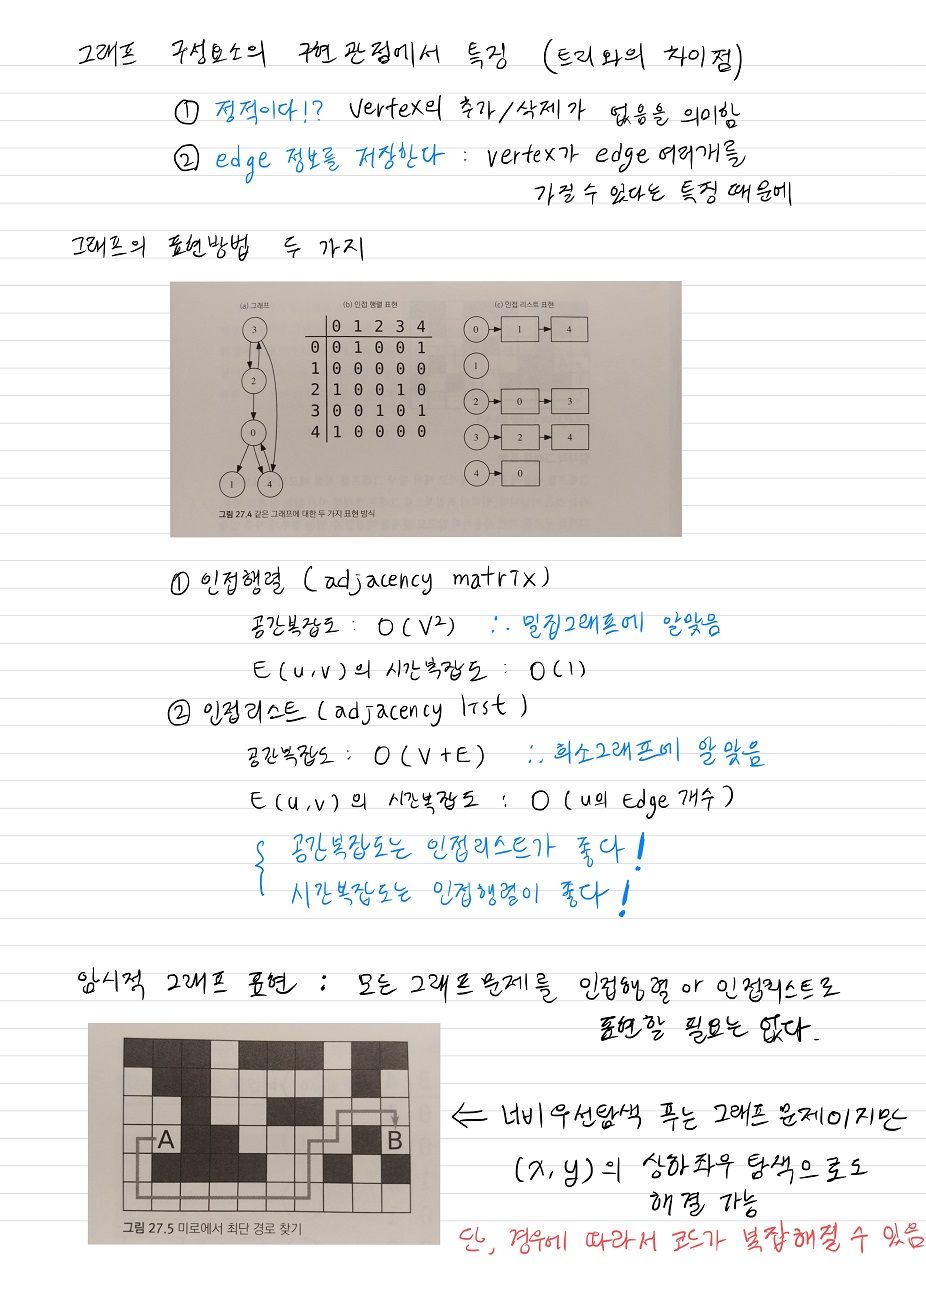 그래프 구성요소의 구현 관점에서 특징 (트리와의 차이점)
① 정적이다!? vertex의 추가/삭제가 없음을 의미함
② edge 정보를 저장한다 : vertex가 edge 여러개를
가질 수 있다는 특징 때문에
그래프의 표현방법 두 가지
(a) 그래프 (b) 인접 행렬 표현 (c) 인접 리스트 표현
3
2
0
1 4
0 1 2 3 4
0 0 1 0 0 1
1 0 0 0 0 0
2 1 0 0 1 0
3 0 0 1 0 1
4 1 0 0 0 0
0 1 4
1
2 0 3
3 2 4
4 0
그림 27.4 같은 그래프에 대한 두 가지 표현 방식
① 인접행렬 (adjacency matrix)
공간복잡도 : O(V²) ∴ 밀집그래프에 알맞음
E(u,v)의 시간복잡도 : O(1)
② 인접리스트 (adjacency list)
공간복잡도 : O(V+E) ∴ 희소그래프에 알맞음
E(u,v)의 시간복잡도 : O(u의 Edge 개수)
공간복잡도는 인접리스트가 좋다!
시간복잡도는 인접행렬이 좋다!
암시적 그래프 표현 : 모든 그래프 문제를 인접행렬 아 인접리스트로
표현할 필요는 없다.
A B
그림 27.5 미로에서 최단 경로 찾기
⇐ 너비우선탐색 푸는 그래프 문제이지만
(x,y)의 상하좌우 탐색으로도
해결 가능
단, 경우에 따라서 코드가 복잡해질 수 있음